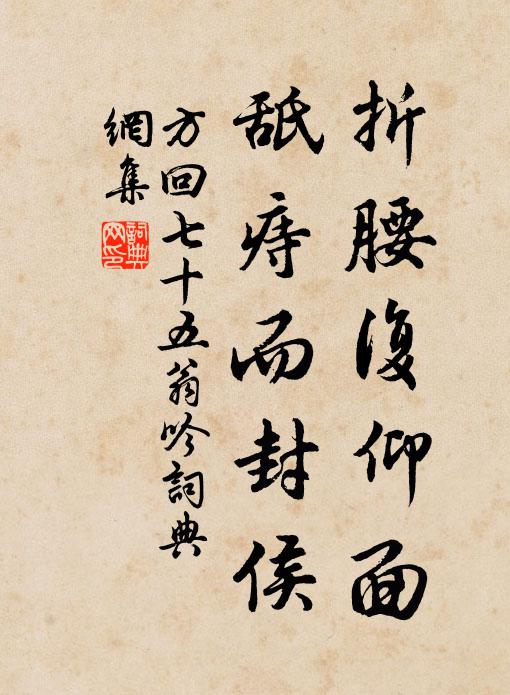 折腰復仰面
舐痔而封侯
方回七十五翁吟詞典
網集
詞典
网印